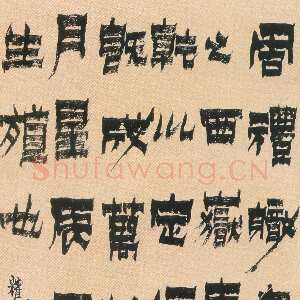 周禮職
之西嶽
乾川定
既成萬
月星辰
生殖也
Shufawang.CN